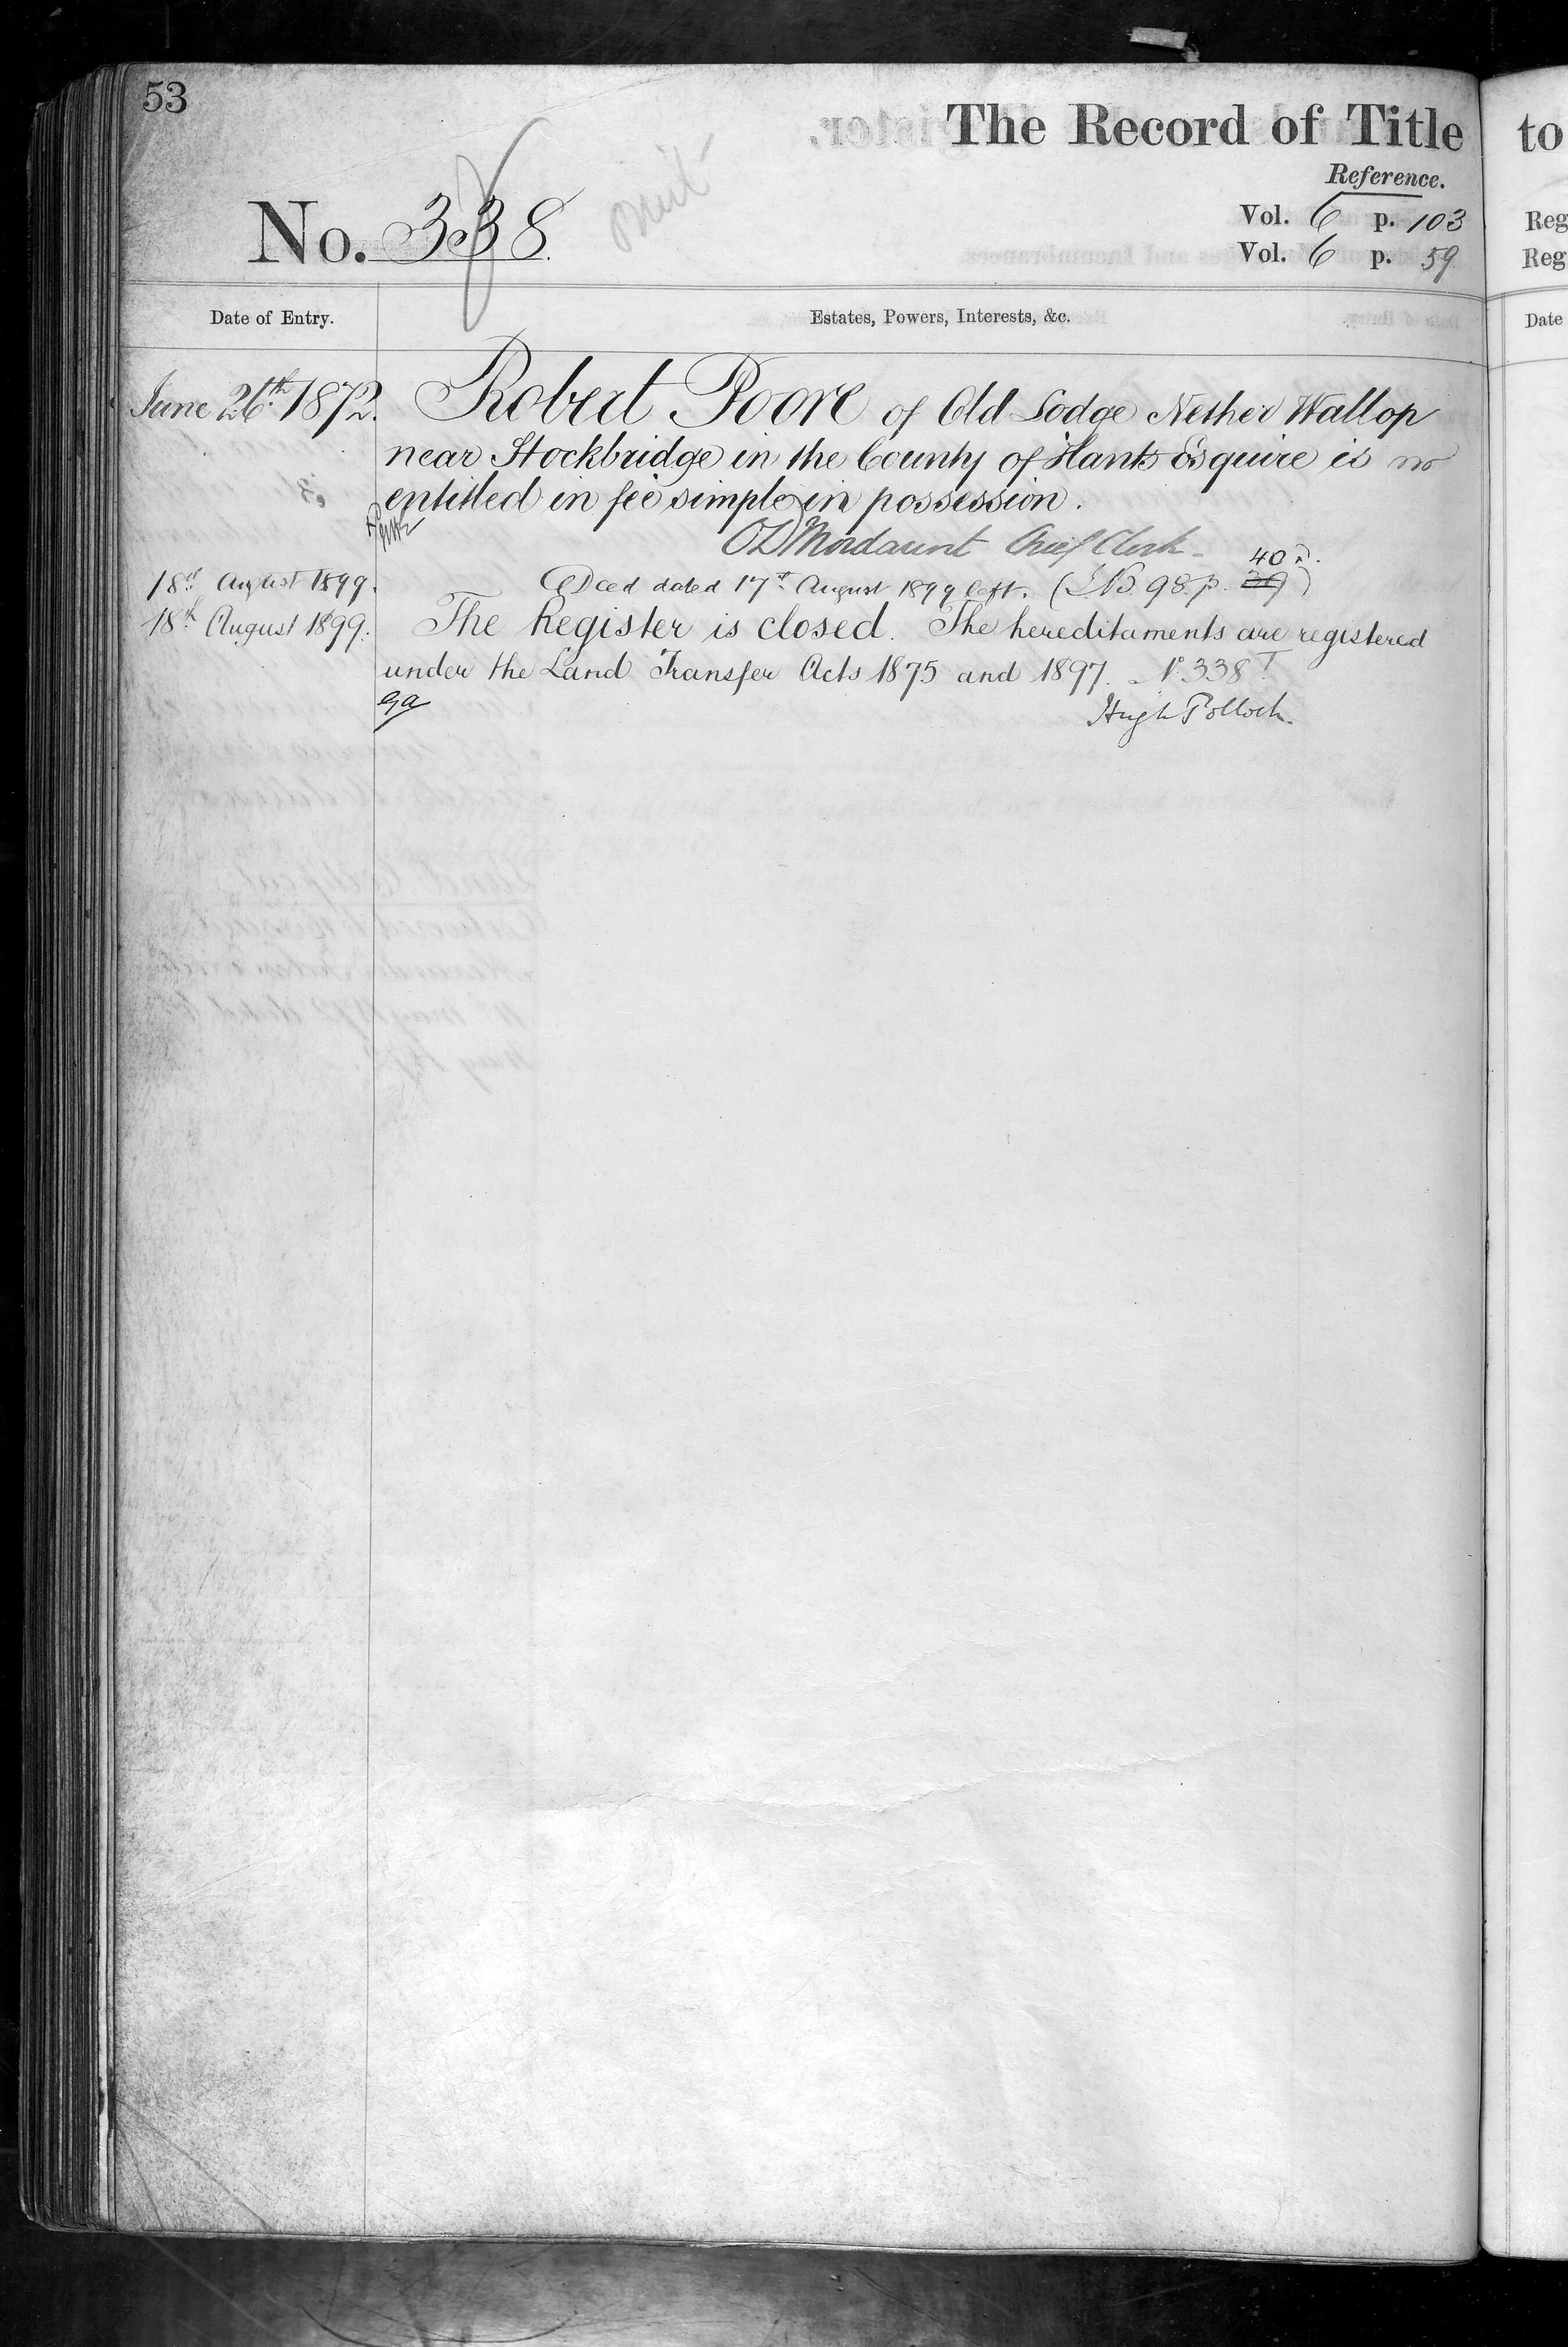 53
The Record of Title
to
Reference.
No. 338.
Vol. 6 p. 103
Reg
Vol. 6 p. 59
Reg
Date of Entry.
Estates, Powers, Interests, &c.
Date
June 26th 1872. Robert Poore of Old Lodge Nether Wallop
near Stockbridge in the County of Hants Esquire is
entitled in fee simple in possession.
Mordaunt Chief Clerk
40
18th August 1899. Deed dated 17th August 1899 left. (98. p. 39)
18th August 1899. The Register is closed. The hereditaments are registered
under the Land Transfer Acts 1875 and 1897. No. 338 T
Hugh Pollock.